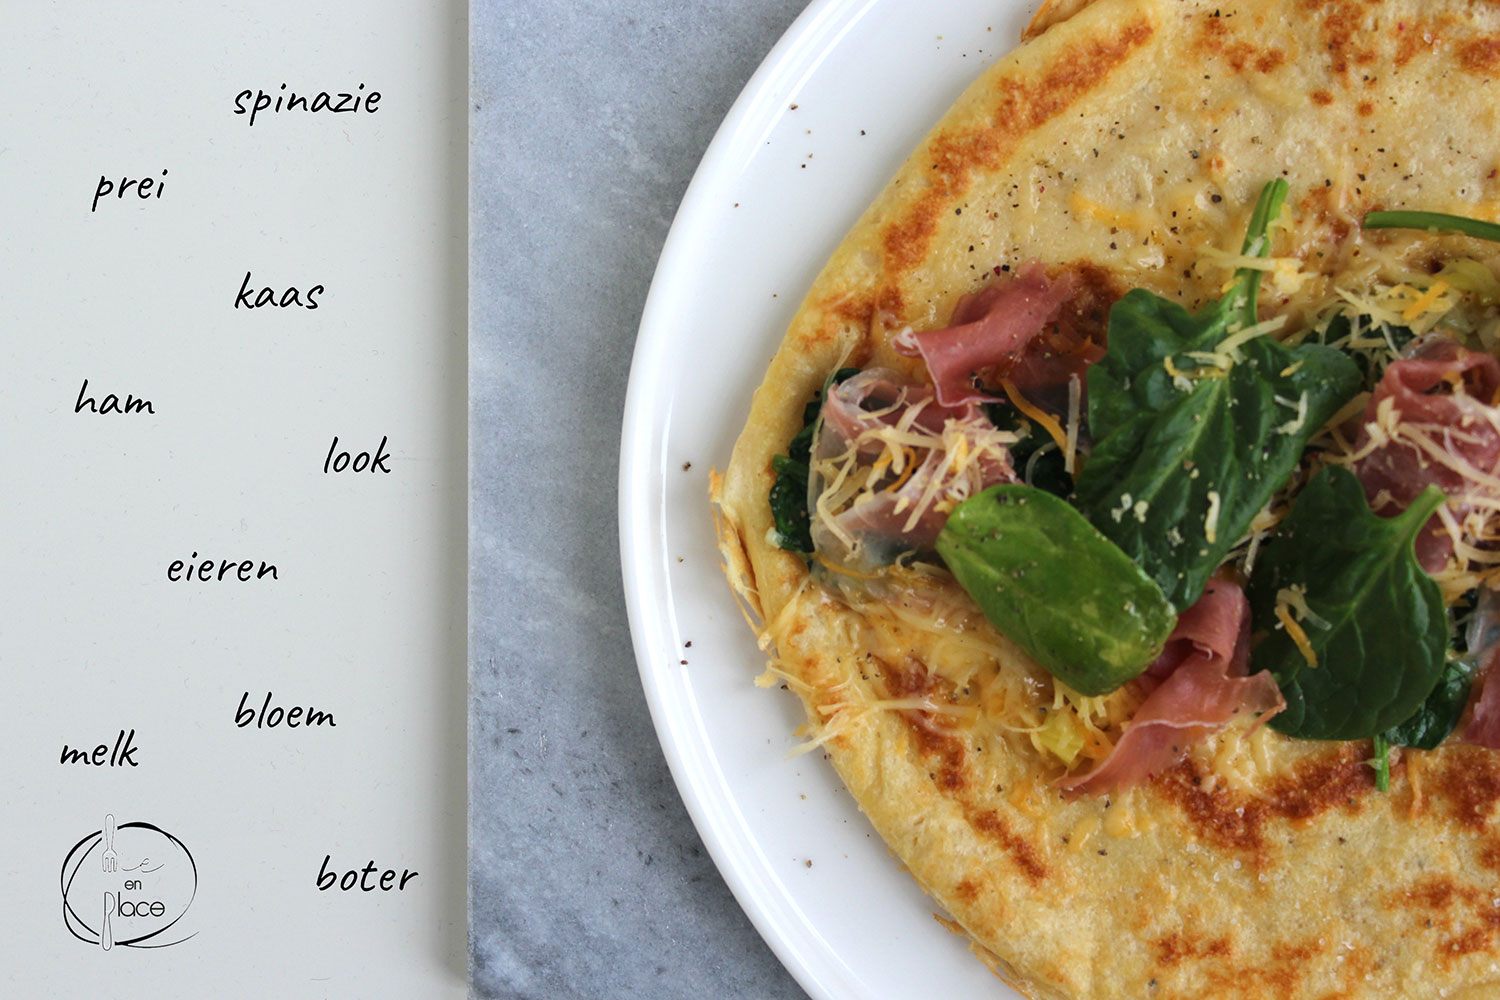 spinazie
prei
kaas
ham
look
eieren
bloem
melk
boter
Mise
en
Place